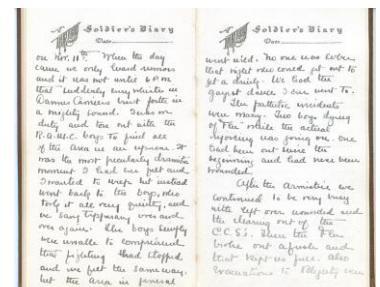 Soldier's Diary
Date
on Nov. 11th When the day
came we only heard rumors
and it was not until 6 P.M
that suddenly every whistle in
Cannes burst forth in
a mighty sound. I was on
duty and tore out with the
R.A.M.C. boys to find all
of the area in an uproar. It
was the most peculiarly dramatic
moment I had ever felt and
I wanted to weep but instead
went back to the boys, who
took it all very quietly, and
we sang Tipperary over and
over again. The boys simply
were unable to comprehend
that fighting had stopped
and we felt the same way.
but the area in general
Soldier's Diary
Date
went wild. No one was sober
that night who could get out to
get a drink. We had the
gayest dance I ever went to.
The pathetic incidents
were many. Two boys dying
of Flu while the actual
uproar was going on. One
had been out since the
beginning and had never been
wounded.
After the Armistice we
continued to be very busy
with left over wounded and
the clearing out of the
C.C.S's. Then the Flu
broke out afresh and
that kept us full. Also
evacuations to Blighty